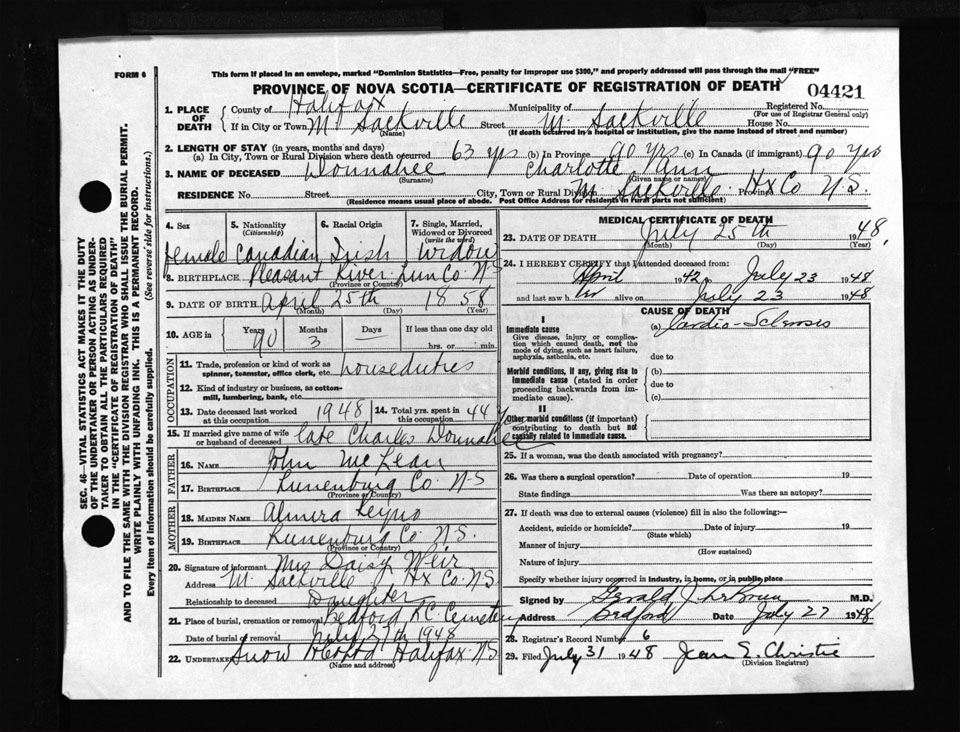 FORM 6
This form if placed in an envelope, marked "Dominion Statistics—Free, penalty for improper use $300," and properly addressed will pass through the mail "FREE"
PROVINCE OF NOVA SCOTIA—CERTIFICATE OF REGISTRATION OF DEATH
04421
1. PLACE OF DEATH
County of Halifax Municipality of Registered No.
(For use of Registrar General only)
If in City or Town M. Sackville Street M. Sackville House No.
(Name) (If death occurred in a hospital or institution, give the name instead of street and number)
2. LENGTH OF STAY (in years, months and days)
(a) In City, Town or Rural Division where death occurred 63 yrs (b) In Province 90 yrs (c) In Canada (if immigrant) 90 yrs
3. NAME OF DECEASED Donnahee Charlotte Ann
(Surname) (Given name or names)
RESIDENCE No. Street City, Town or Rural Div. M. Sackville Province Hx Co N.S
(Residence means usual place of abode. Post Office Address for residents in rural parts not sufficient)
4. Sex 5. Nationality (Citizenship) 6. Racial Origin 7. Single, Married, Widowed or Divorced (write the word)
Female Canadian Irish widow
8. BIRTHPLACE Pleasant River Lun Co N-S
9. DATE OF BIRTH April 25th 1858
(Month) (Day) (Year)
10. AGE in Years 90 Months 3 Days — If less than one day old hrs. or min.
OCCUPATION
11. Trade, profession or kind of work as spinner, teamster, office clerk, etc. houseduties
12. Kind of industry or business, as cotton-mill, lumbering, bank, etc.
13. Date deceased last worked at this occupation 1948 14. Total yrs. spent in this occupation 44 y
15. If married give name of wife or husband of deceased late Charles Donnahee
FATHER
16. NAME John McLean
17. BIRTHPLACE Lunenburg Co N-S
(Province or Country)
MOTHER
18. MAIDEN NAME Almira
19. BIRTHPLACE Lunenburg Co N.S.
(Province or Country)
20. Signature of informant Mrs Daisy Weir
Address M. Sackville Hx Co N.S
Relationship to deceased Daughter
21. Place of burial, cremation or removal Bedford RC Cemetery
Date of burial or removal July 27th 1948
22. UNDERTAKER Snow Halifax N.S
(Name and address)
MEDICAL CERTIFICATE OF DEATH
23. DATE OF DEATH July 25th 1948
(Month) (Day) (Year)
24. I HEREBY CERTIFY that I attended deceased from:
April 1942 to July 23 1948
and last saw her alive on July 23 1948
CAUSE OF DEATH
I
Immediate cause (a) Cardio-Sclerosis
Give disease, injury or complication which caused death, not the mode of dying, such as heart failure, asphyxia, asthenia, etc.
due to
Morbid conditions, if any, giving rise to immediate cause (stated in order proceeding backwards from immediate cause).
(b)
due to
(c)
II
Other morbid conditions (if important) contributing to death but not causally related to immediate cause.
25. If a woman, was the death associated with pregnancy?
26. Was there a surgical operation? Date of operation 19
State findings Was there an autopsy?
27. If death was due to external causes (violence) fill in also the following:—
Accident, suicide or homicide? Date of injury 19
(State which)
Manner of injury
(How sustained)
Nature of injury
Specify whether injury occurred in industry, in home, or in public place
Signed by Gerald J. LeBrun M.D.
Address Bedford Date July 27 1948
28. Registrar's Record Number 6
29. Filed July 31 1948 Jean E. Christie
(Division Registrar)
SEC. 46—VITAL STATISTICS ACT MAKES IT THE DUTY
OF THE UNDERTAKER OR PERSON ACTING AS UNDER-
TAKER TO OBTAIN ALL THE PARTICULARS REQUIRED
IN THE "CERTIFICATE OF REGISTRATION OF DEATH"
AND TO FILE THE SAME WITH THE DIVISION REGISTRAR WHO SHALL ISSUE THE BURIAL PERMIT.
WRITE PLAINLY WITH UNFADING INK. THIS IS A PERMANENT RECORD.
Every item of information should be carefully supplied. (See reverse side for instructions.)